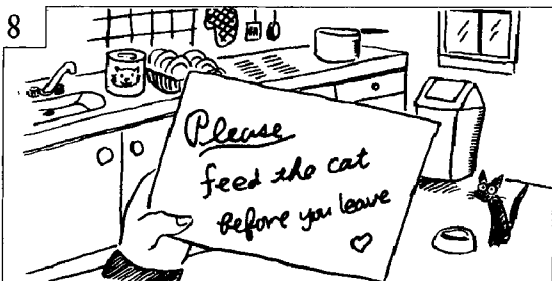 8
Please
feed the cat
before you leave
♡